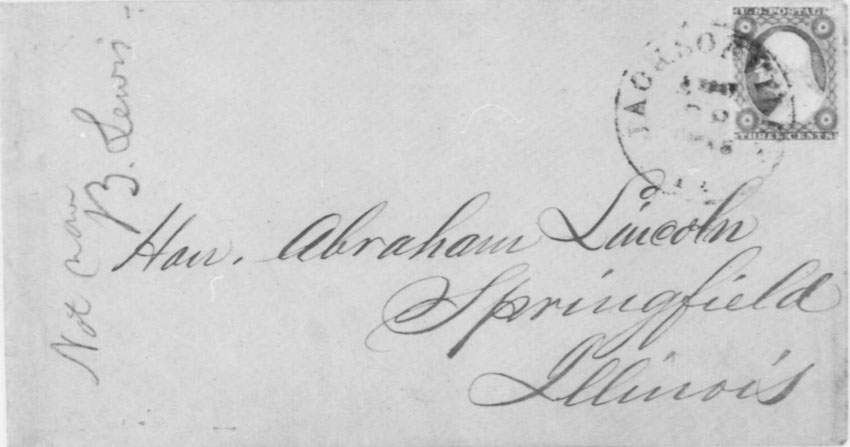 U.S. POSTAGE
THREE CENTS
Hon. Abraham Lincoln
Springfield
Illinois
Not now
B. Lewis